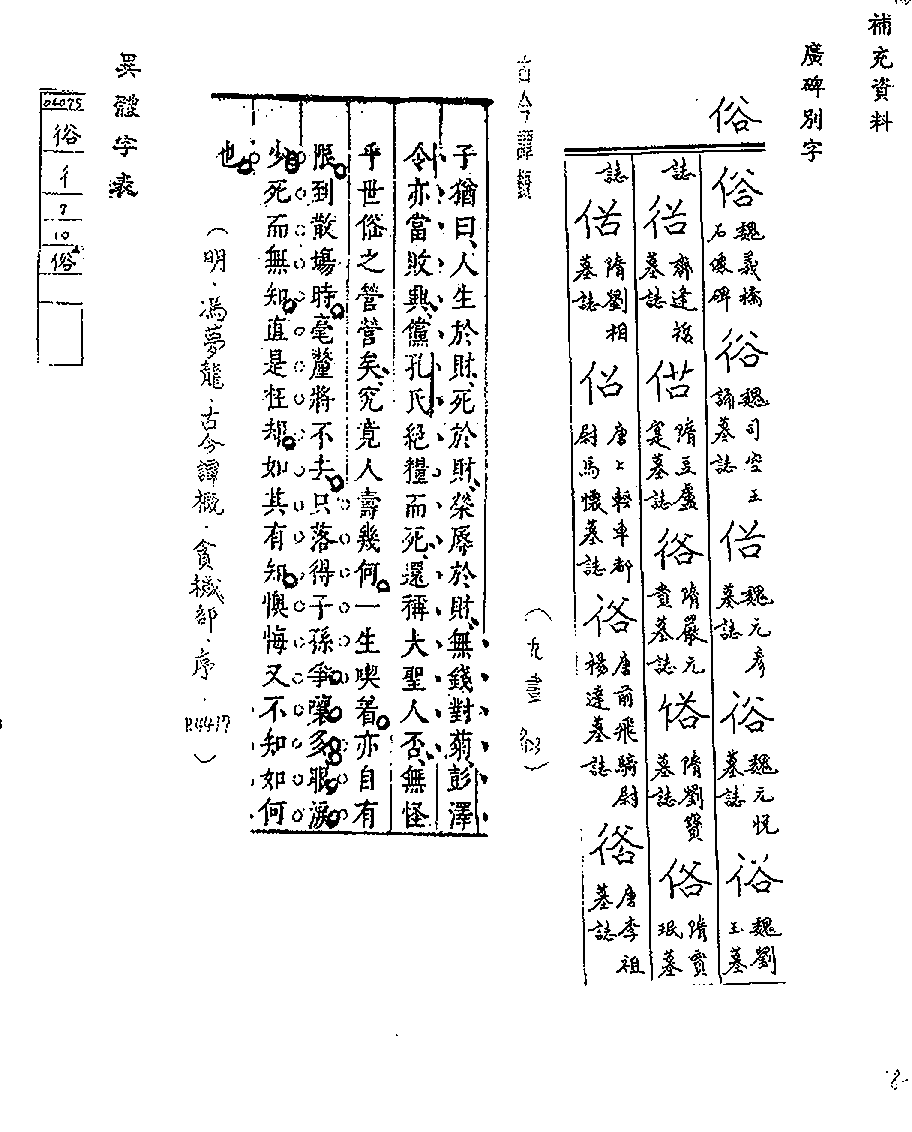 補充資料
廣碑別字
俗
俗 魏義橋石像碑 俗 魏司空王誦墓誌 俗 魏元彥墓誌 俗 魏元悅墓誌 俗 魏劉玉墓
誌 俗 齊逢哲墓誌 俗 隋豆盧寔墓誌 俗 隋嚴元貴墓誌 俗 隋劉賓墓誌 俗 隋賈珉墓
誌 俗 隋劉相墓誌 俗 唐上輕車都尉馬懷墓誌 俗 唐前飛騎尉楊達墓誌 俗 唐李祖墓誌
(九畫 )
古今譚概
子猶曰人生於財死於財榮辱於財無錢對菊彭澤
令亦當敗興儻孔氏絕糧而死還稱大聖人否無怪
乎世俗之營營矣究竟人壽幾何一生喫着亦自有
限到散塲時毫釐將不去只落得子孫爭嚷多眼淚
少死而無知直是枉却如其有知懊悔又不知如何
也
(明.馮夢龍.古今譚概.貪穢部.序.P.4417)
異體字表
俗
亻
7
10
俗